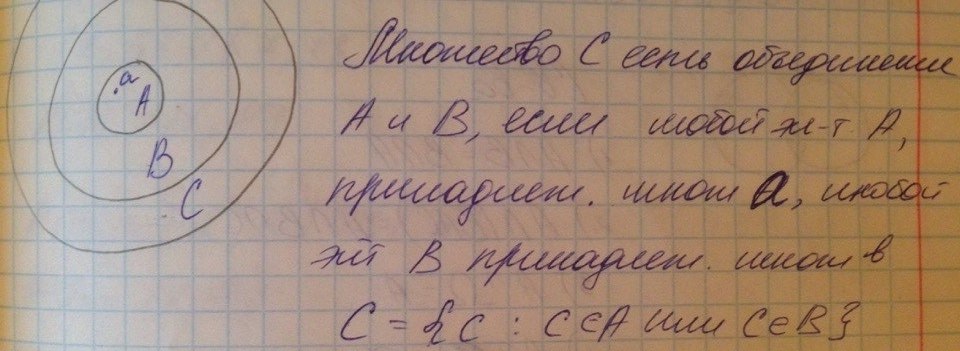 a
A
B
C
Множество C есть объединение
A и B, если любой эл-т A,
принадлеж. множ a, и любой
эл-т B принадлеж. множ в
C = {c : c ∈ A или c ∈ B}